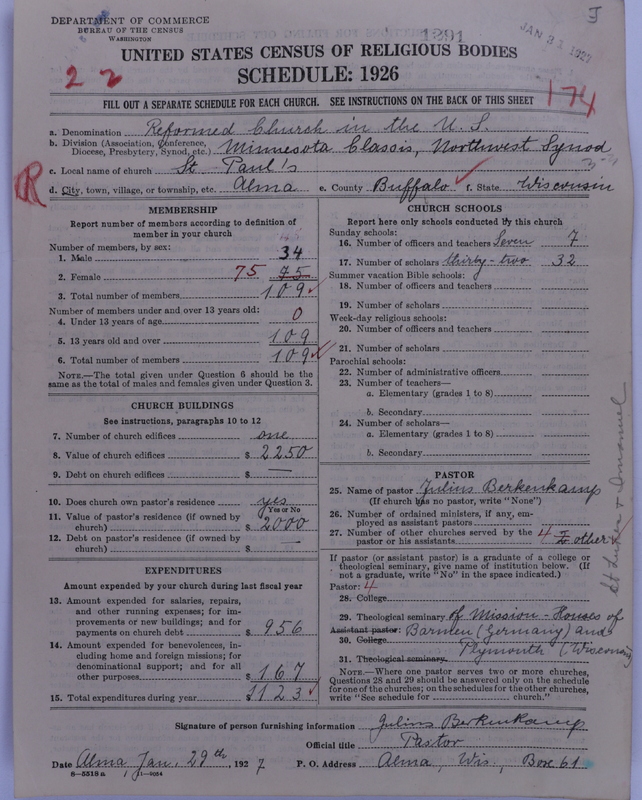 DEPARTMENT OF COMMERCE
BUREAU OF THE CENSUS
WASHINGTON
1291
JAN 31 1927
UNITED STATES CENSUS OF RELIGIOUS BODIES
SCHEDULE: 1926
2 2
174
FILL OUT A SEPARATE SCHEDULE FOR EACH CHURCH. SEE INSTRUCTIONS ON THE BACK OF THIS SHEET
a. Denomination Reformed Church in the U. S.
b. Division (Association, Conference, Diocese, Presbytery, Synod, etc.) Minnesota Classis, Northwest Synod
c. Local name of church St. Paul's
R
d. City, town, village, or township, etc. Alma e. County Buffalo f. State Wisconsin
MEMBERSHIP
Report number of members according to definition of member in your church
Number of members, by sex:
1. Male 34
2. Female 75 75
3. Total number of members 109
Number of members under and over 13 years old:
4. Under 13 years of age 0
5. 13 years old and over 109
6. Total number of members 109
NOTE.—The total given under Question 6 should be the same as the total of males and females given under Question 3.
CHURCH BUILDINGS
See instructions, paragraphs 10 to 12
7. Number of church edifices one
8. Value of church edifices $ 2250
9. Debt on church edifices $ —
10. Does church own pastor's residence yes
Yes or No
11. Value of pastor's residence (if owned by church) $ 2000
12. Debt on pastor's residence (if owned by church) $ —
EXPENDITURES
Amount expended by your church during last fiscal year
13. Amount expended for salaries, repairs, and other running expenses; for improvements or new buildings; and for payments on church debt $ 956
14. Amount expended for benevolences, including home and foreign missions; for denominational support; and for all other purposes $ 167
15. Total expenditures during year $ 1123
CHURCH SCHOOLS
Report here only schools conducted by this church
Sunday schools:
16. Number of officers and teachers Seven 7
17. Number of scholars thirty-two 32
Summer vacation Bible schools:
18. Number of officers and teachers
19. Number of scholars
Week-day religious schools:
20. Number of officers and teachers
21. Number of scholars
Parochial schools:
22. Number of administrative officers
23. Number of teachers—
a. Elementary (grades 1 to 8)
b. Secondary
24. Number of scholars—
a. Elementary (grades 1 to 8)
b. Secondary
PASTOR
25. Name of pastor Julius Berkenkamp
(If church has no pastor, write "None")
26. Number of ordained ministers, if any, employed as assistant pastors
27. Number of other churches served by the pastor or his assistants 4 other
If pastor (or assistant pastor) is a graduate of a college or theological seminary, give name of institution below. (If not a graduate, write "No" in the space indicated.)
Pastor: 4
28. College
29. Theological seminary Of Mission-Houses of
Assistant pastor: Barmen (Germany) and
30. College
Plymouth (Wisconsin)
31. Theological seminary
NOTE.—Where one pastor serves two or more churches, Questions 28 and 29 should be answered only on the schedule for one of the churches; on the schedules for the other churches, write "See schedule for church."
St Luke's + Immanuel
Signature of person furnishing information Julius Berkenkamp
Official title Pastor
Date Alma Jan. 29th, 1927 P. O. Address Alma, Wis., Box 61
8—5518 a